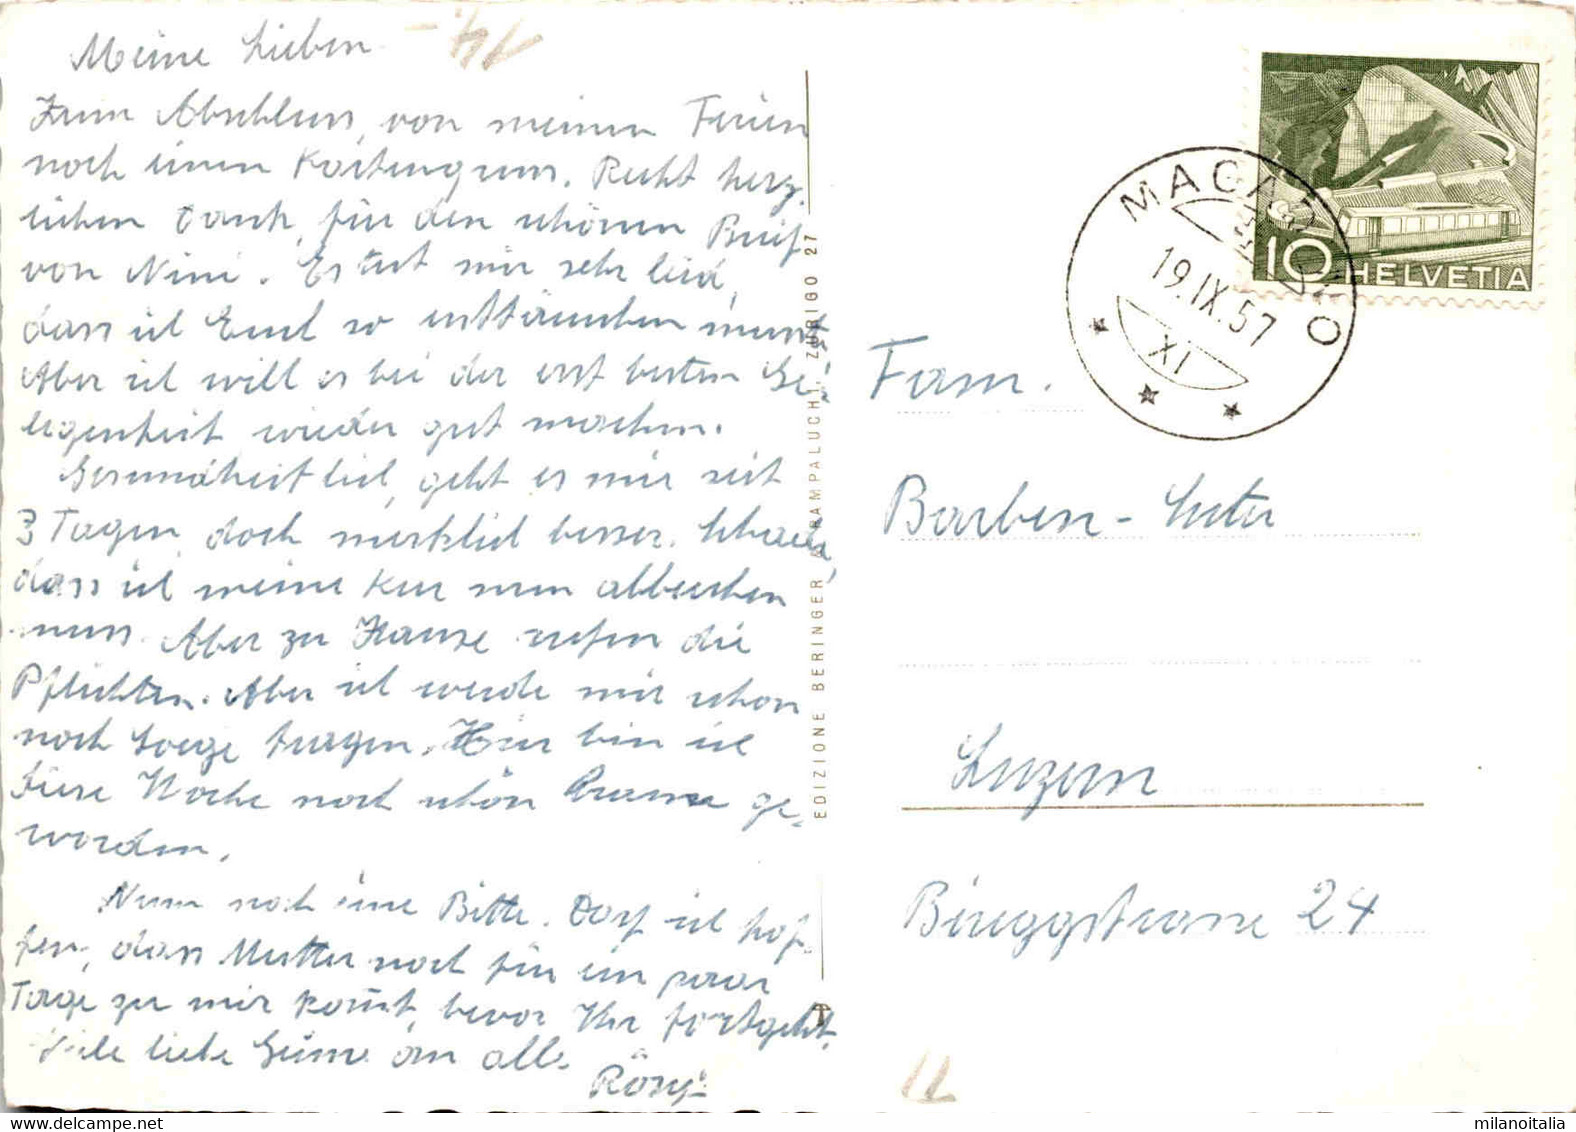 Meine Lieben
Zum Abschluss, von meinen Ferien
noch einen Kartengruss. Recht herz-
lichen Dank, für den schönen Brief
von Nini. Es tut mir sehr leid,
dass ich Euch so enttäuschen musste
Aber ich will es bei der erst besten Ge-
legenheit wieder gut machen.
Gesundheitlich, geht es mir seit
3 Tagen doch merklich besser. Schade,
dass ich meine Kur nun abbrechen
muss. Aber zu Hause rufen die
Pflichten. Aber ich werde mir schon
noch Sorge tragen. Hier bin ich
diese Woche noch schön braun ge-
worden.
Nun noch eine Bitte. Darf ich hof-
fen, dass Mutter noch für ein paar
Tage zu mir kommt, bevor Ihr fortgeht.
Viele liebe Grüsse an alle
Rösy
14.-
EDIZIONE BERINGER & PAMPALUCHI, ZURIGO 27
MAGADINO
19.IX.57
XI
10 HELVETIA
Fam.
Barben-Suter
Luzern
Bruggstrasse 24
milanoitalia